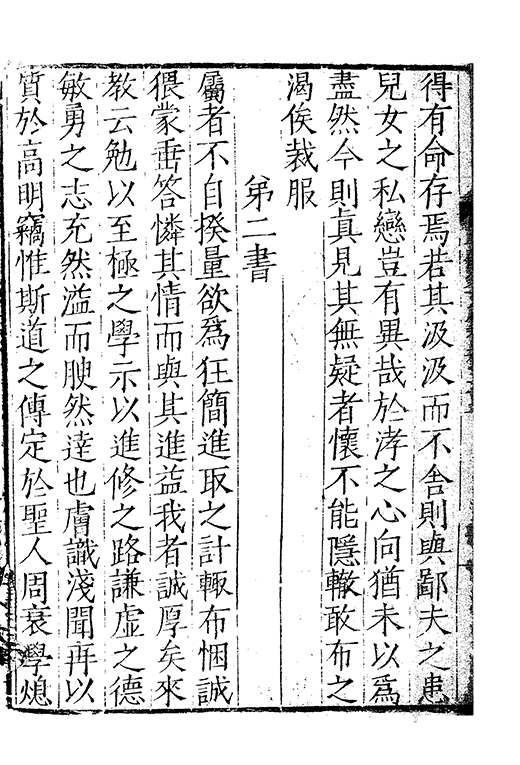 得有命存焉若其汲汲而不舍則與鄙夫之患
兒女之私戀豈有異哉於涍之心向猶未以爲
盡然今則眞見其無疑者懷不能隱輙敢布之
渴俟裁服
第二書
屬者不自揆量欲爲狂簡進取之計輙布悃誠
猥蒙垂答憐其情而與其進益我者誠厚矣來
教云勉以至極之學示以進修之路謙虛之德
敏勇之志充然溢而腴然達也膚識淺聞再以
質於高明竊惟斯道之傳定於聖人周衰學熄